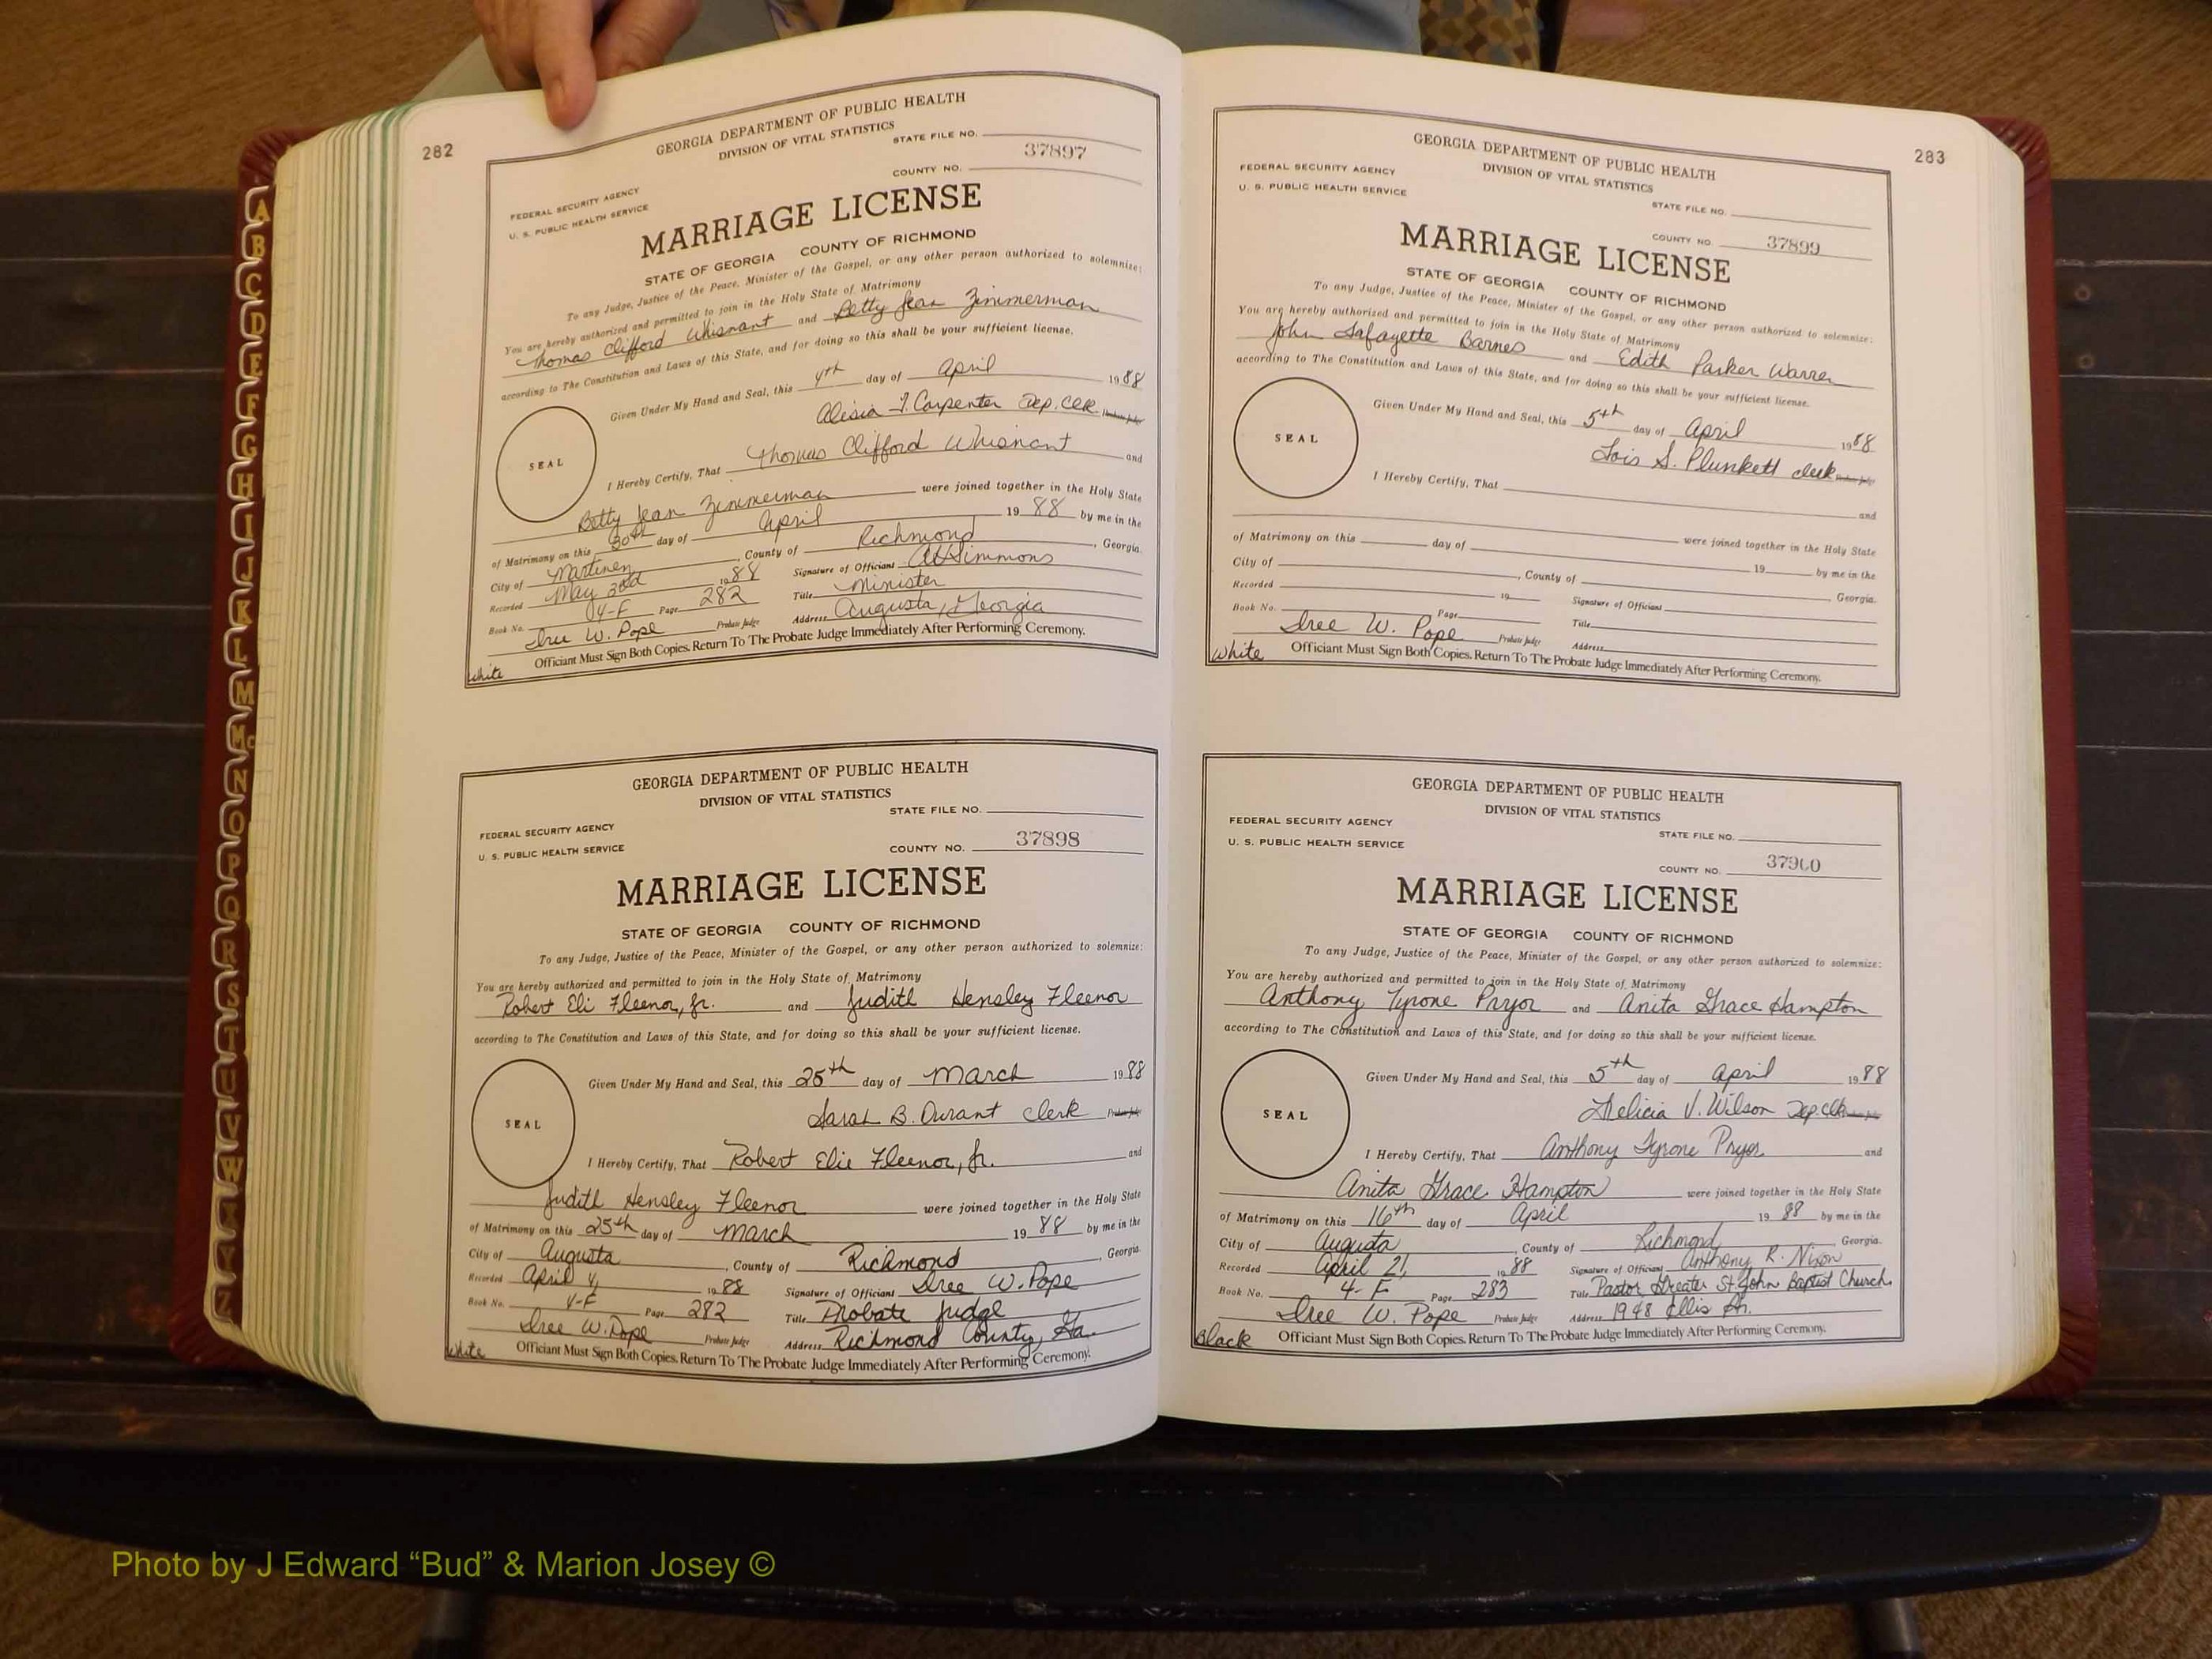 282
GEORGIA DEPARTMENT OF PUBLIC HEALTH
DIVISION OF VITAL STATISTICS
STATE FILE NO.
FEDERAL SECURITY AGENCY
COUNTY NO. 37897
U. S. PUBLIC HEALTH SERVICE
MARRIAGE LICENSE
STATE OF GEORGIA COUNTY OF RICHMOND
To any Judge, Justice of the Peace, Minister of the Gospel, or any other person authorized to solemnize:
You are hereby authorized and permitted to join in the Holy State of Matrimony
Thomas Clifford Whisnant and Betty Jean Zimmerman
according to The Constitution and Laws of this State, and for doing so this shall be your sufficient license.
Given Under My Hand and Seal, this 4th day of April 1988
Alisia T. Carpenter Dep. Clk. Probate Judge
SEAL
I Hereby Certify, That Thomas Clifford Whisnant and
Betty Jean Zimmerman were joined together in the Holy State
of Matrimony on this 30th day of April 1988 by me in the
City of Martinez, County of Richmond, Georgia.
Recorded May 3rd 1988 Signature of Officiant Simmons
Book No. 4-F Page 282 Title Minister
Iree W. Pope Probate Judge Address Augusta, Georgia
Officiant Must Sign Both Copies. Return To The Probate Judge Immediately After Performing Ceremony.
White
GEORGIA DEPARTMENT OF PUBLIC HEALTH
DIVISION OF VITAL STATISTICS
STATE FILE NO.
FEDERAL SECURITY AGENCY
COUNTY NO. 37898
U. S. PUBLIC HEALTH SERVICE
MARRIAGE LICENSE
STATE OF GEORGIA COUNTY OF RICHMOND
To any Judge, Justice of the Peace, Minister of the Gospel, or any other person authorized to solemnize:
You are hereby authorized and permitted to join in the Holy State of Matrimony
Robert Eli Fleenor, Jr. and Judith Hensley Fleenor
according to The Constitution and Laws of this State, and for doing so this shall be your sufficient license.
Given Under My Hand and Seal, this 25th day of March 1988
Sarah B. Durant Clerk Probate Judge
SEAL
I Hereby Certify, That Robert Elie Fleenor, Jr. and
Judith Hensley Fleenor were joined together in the Holy State
of Matrimony on this 25th day of March 1988 by me in the
City of Augusta, County of Richmond, Georgia.
Recorded April 4, 1988 Signature of Officiant Iree W. Pope
Book No. 4-F Page 282 Title Probate Judge
Iree W. Pope Probate Judge Address Richmond County, Ga.
Officiant Must Sign Both Copies. Return To The Probate Judge Immediately After Performing Ceremony.
White
283
GEORGIA DEPARTMENT OF PUBLIC HEALTH
DIVISION OF VITAL STATISTICS
FEDERAL SECURITY AGENCY
U. S. PUBLIC HEALTH SERVICE
STATE FILE NO.
COUNTY NO. 37899
MARRIAGE LICENSE
STATE OF GEORGIA COUNTY OF RICHMOND
To any Judge, Justice of the Peace, Minister of the Gospel, or any other person authorized to solemnize:
You are hereby authorized and permitted to join in the Holy State of Matrimony
John Lafayette Barnes and Edith Parker Warren
according to The Constitution and Laws of this State, and for doing so this shall be your sufficient license.
Given Under My Hand and Seal, this 5th day of April 1988
Lois S. Plunkett clerk Probate Judge
SEAL
I Hereby Certify, That
and
were joined together in the Holy State
of Matrimony on this day of 19 by me in the
City of , County of Georgia.
Recorded 19 Signature of Officiant
Book No. Page Title
Iree W. Pope Probate Judge Address
Officiant Must Sign Both Copies. Return To The Probate Judge Immediately After Performing Ceremony.
White
GEORGIA DEPARTMENT OF PUBLIC HEALTH
DIVISION OF VITAL STATISTICS
FEDERAL SECURITY AGENCY
STATE FILE NO.
U. S. PUBLIC HEALTH SERVICE
COUNTY NO. 37900
MARRIAGE LICENSE
STATE OF GEORGIA COUNTY OF RICHMOND
To any Judge, Justice of the Peace, Minister of the Gospel, or any other person authorized to solemnize:
You are hereby authorized and permitted to join in the Holy State of Matrimony
Anthony Tyrone Pryor and Anita Grace Hampton
according to The Constitution and Laws of this State, and for doing so this shall be your sufficient license.
Given Under My Hand and Seal, this 5th day of April 1988
Felicia V. Wilson Dep. Clk. Probate Judge
SEAL
I Hereby Certify, That Anthony Tyrone Pryor and
Anita Grace Hampton were joined together in the Holy State
of Matrimony on this 16th day of April 1988 by me in the
City of Augusta, County of Richmond, Georgia.
Recorded April 21, 1988 Signature of Officiant Anthony R. Nixon
Book No. 4-F Page 283 Title Pastor Greater St. John Baptist Church
Iree W. Pope Probate Judge Address 1948 Ellis St.
Officiant Must Sign Both Copies. Return To The Probate Judge Immediately After Performing Ceremony.
Black
A
B
C
D
E
F
G
H
I
J
K
L
M
Mc
N
O
P
Q
R
S
T
U
V
W
X
Y
Z
Photo by J Edward “Bud” & Marion Josey ©